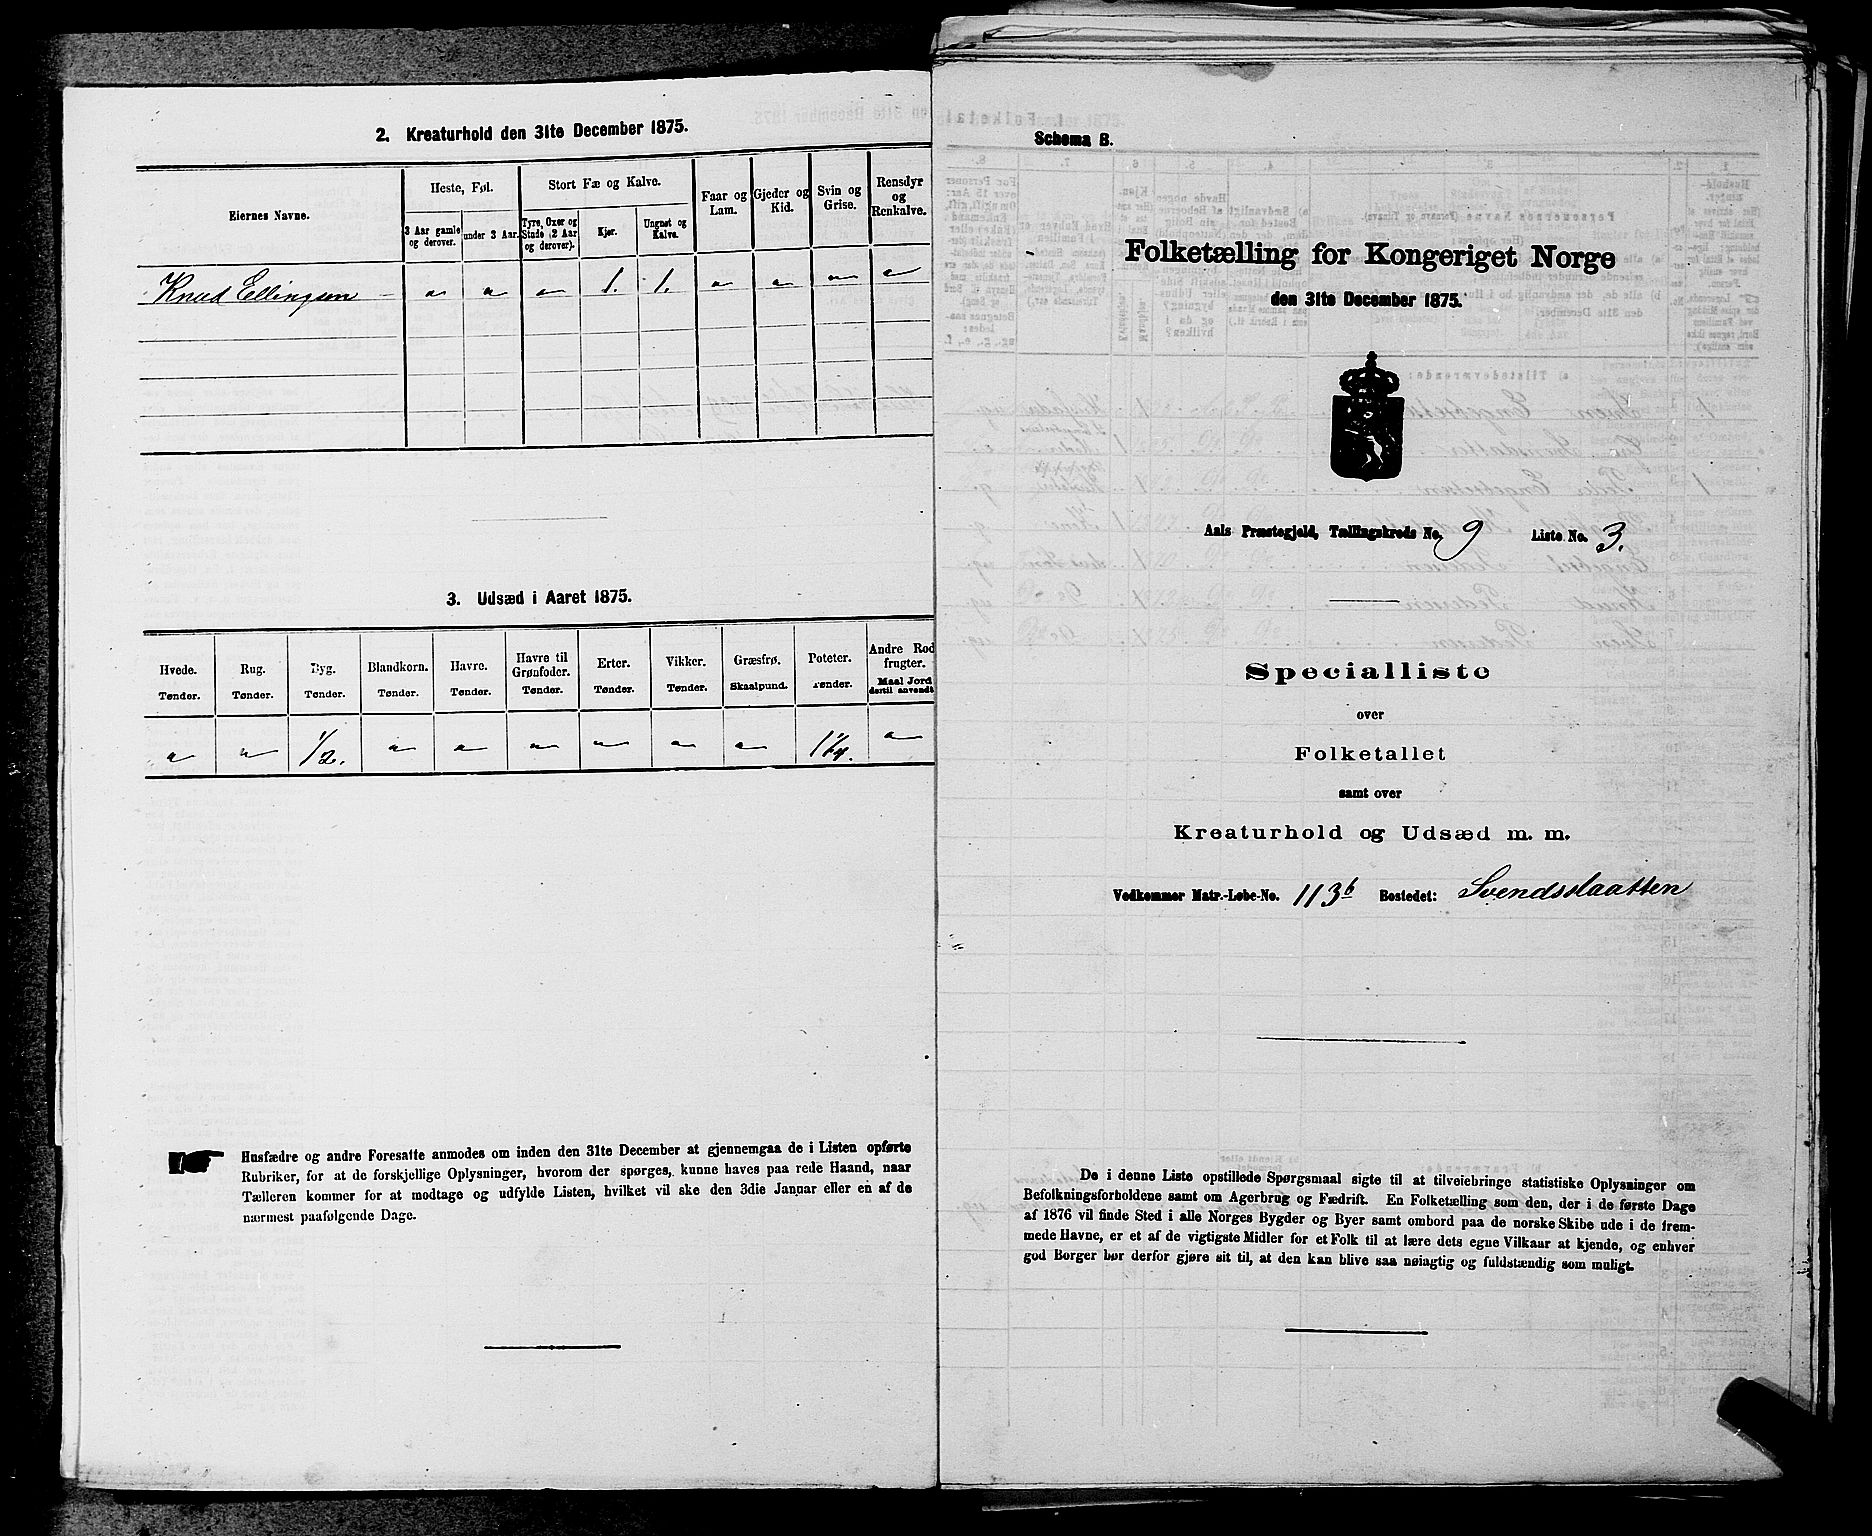 2. Kreaturhold den 31te December 1875.
Eiernes Navne.
Heste, Føl.
3 Aar gamle og derover.
under 3 Aar.
Stort Fæ og Kalve.
Tyre, Oxer og Stude (2 Aar og derover).
Kjør.
Ungnøt og Kalve.
Faar og Lam.
Gjeder og Kid.
Svin og Grise.
Rensdyr og Renkalve.
Knud Ellingsen – " " " 1. 1. " " " "
3. Udsæd i Aaret 1875.
Hvede. Rug. Byg. Blandkorn. Havre. Havre til Grønfoder. Erter. Vikker. Græsfrø. Poteter. Andre Rodfrugter.
Tønder. Tønder. Tønder. Tønder. Tønder. Tønder. Tønder. Tønder. Skaalpund. Tønder. Maal Jord dertil anvendt.
" " 1/2. " " " " " " 1 1/4. "
Husfædre og andre Foresatte anmodes om inden den 31te December at gjennemgaa de i Listen opførte
Rubriker, for at de forskjellige Oplysninger, hvorom der spørges, kunne haves paa rede Haand, naar
Tælleren kommer for at modtage og udfylde Listen, hvilket vil ske den 3die Januar eller en af de
nærmest paafølgende Dage.
Schema B.
Folketælling for Kongeriget Norge
den 31te December 1875.
Aals Præstegjeld, Tællingskreds No. 9 Liste No. 3.
Specialliste
over
Folketallet
samt over
Kreaturhold og Udsæd m. m.
Vedkommer Matr.-Løbe-No. 113b Bostedet: Svendsslaatten
De i denne Liste opstillede Spørgsmaal sigte til at tilveiebringe statistiske Oplysninger om
Befolkningsforholdene samt om Agerbrug og Fædrift. En Folketælling som den, der i de første Dage
af 1876 vil finde Sted i alle Norges Bygder og Byer samt ombord paa de norske Skibe ude i de frem-
mede Havne, er et af de vigtigste Midler for et Folk til at lære dets egne Vilkaar at kjende, og enhver
god Borger bør derfor gjøre sit til, at den kan blive saa nøiagtig og fuldstændig som muligt.